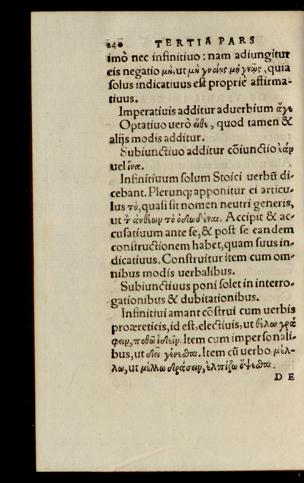 240 TERTIA PARS
imò nec infinitiuo: nam adiungitur
eis negatio μὴ, ut μὴ γνοίης μὴ γνῷς, quia
solus indicatiuus est propriè affirma-
tiuus.
Imperatiuis additur aduerbium ἄγε
Optatiuo uerò εἴθε, quod tamen &
alijs modis additur.
Subiunctiuo additur cõiunctio ἐὰν
uel ἵνα.
Infinitiuum solum Stoici uerbũ di-
cebant. Plerunq; apponitur ei articu-
lus τὸ, quasi sit nomen neutri generis,
ut Accipit & ac-
cusatiuum ante se, & post se eandem
constructionem habet, quam suus in-
dicatiuus. Construitur item cum om-
nibus modis uerbalibus.
Subiunctiuus poni solet in interro-
gationibus & dubitationibus.
Infinitiui amant cõstrui cum uerbis
proæreticis, id est, electiuis, ut θέλω γρά
φειν, ποθῶ ἰδεῖν. Item cum impersonali-
bus, ut δεῖ γενέσθαι. Item cũ uerbo μέλ-
λω, ut μέλλω δράσειν, ἐλπίζω ὄψεσθαι.
D E